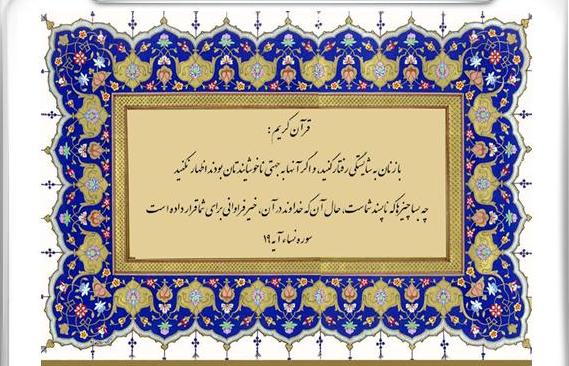 قرآن کریم:
با زنان به شایستگی رفتار کنید، و اگر آنها به جهتی ناخوشایندتان بودند اظهار نکنید
چه بسا چیزها که ناپسند شماست، حال آن که خداوند در آن، خیر فراوانی برای شما قرار داده است
سوره نساء آیه ۱۹